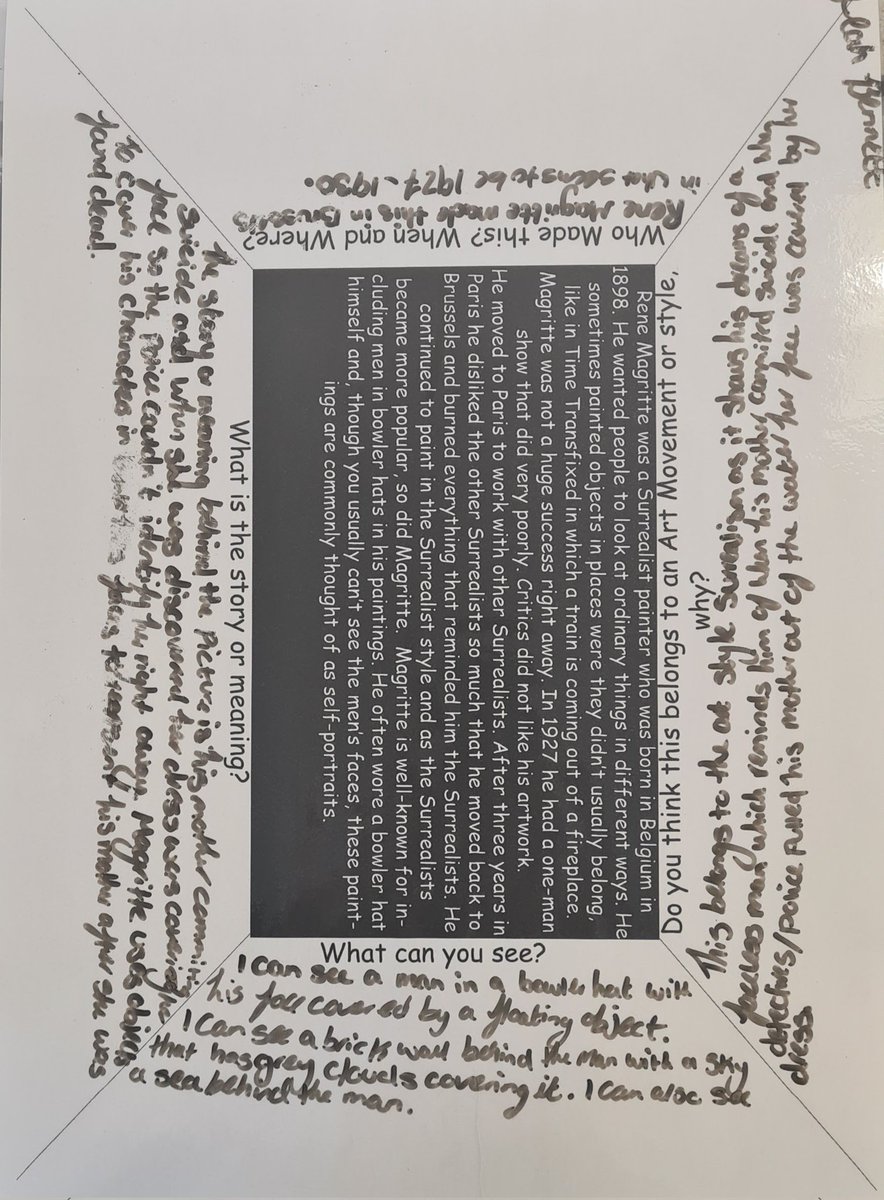 Who Made this? When and Where?
Rene Magritte made this in Brussels
in what seems to be 1927-1930.
Do you think this belongs to an Art Movement or style,
why?
This belongs to the art style Surrealism as it shows his dreams of a
faceless man which reminds him of when his mother commited suicide and when
detectives/police pulled his mother out of the water her face was covered by her
dress
Rene Magritte was a Surrealist painter who was born in Belgium in
1898. He wanted people to look at ordinary things in different ways. He
sometimes painted objects in places were they didn't usually belong,
like in Time Transfixed in which a train is coming out of a fireplace.
Magritte was not a huge success right away. In 1927 he had a one-man
show that did very poorly. Critics did not like his artwork.
He moved to Paris to work with other Surrealists. After three years in
Paris he disliked the other Surrealists so much that he moved back to
Brussels and burned everything that reminded him the Surrealists. He
continued to paint in the Surrealist style and as the Surrealists
became more popular, so did Magritte. Magritte is well-known for in-
cluding men in bowler hats in his paintings. He often wore a bowler hat
himself and, though you usually can't see the men's faces, these paint-
ings are commonly thought of as self-portraits.
What is the story or meaning?
The story or meaning behind the picture is his mother commiting
suicide and when she was discovered her dress were covering the
face so the police couldn't identify her right away. Magritte uses objects
to cover his characters in faces to represent his mother after she was
found dead.
What can you see?
I can see a man in a bowler hat with
his face covered by a floating object.
I can see a brick wall behind the man with a sky
that has grey clouds covering it. I can also see
a sea behind the man.